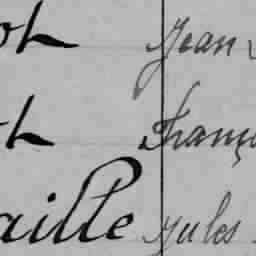 ot Jean
ot Franç
aille Jules